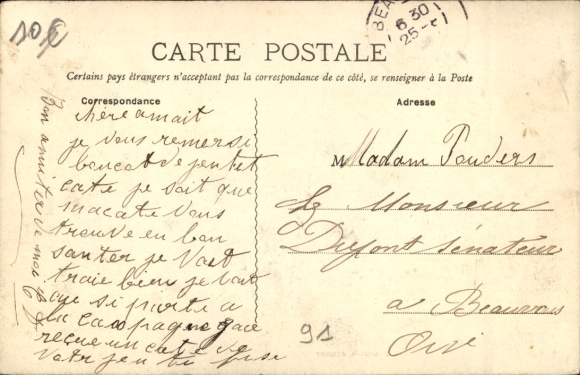 10€
BEA
6 30
25
CARTE POSTALE
Certains pays étrangers n'acceptant pas la correspondance de ce côté, se renseigner à la Poste
Correspondance
Adresse
chère amait
je vous remersi
boucot de jentet
cate je sait que
ma cate vous
trouve en bon
santer je vast
traie bien je vait
que si parte a
la campagne
recue un cate de
votr jen
Bon amitier de moi
M Madam Pauders
chz Monsieur
Dupont Sénateur
a Beauvais
Oise
91